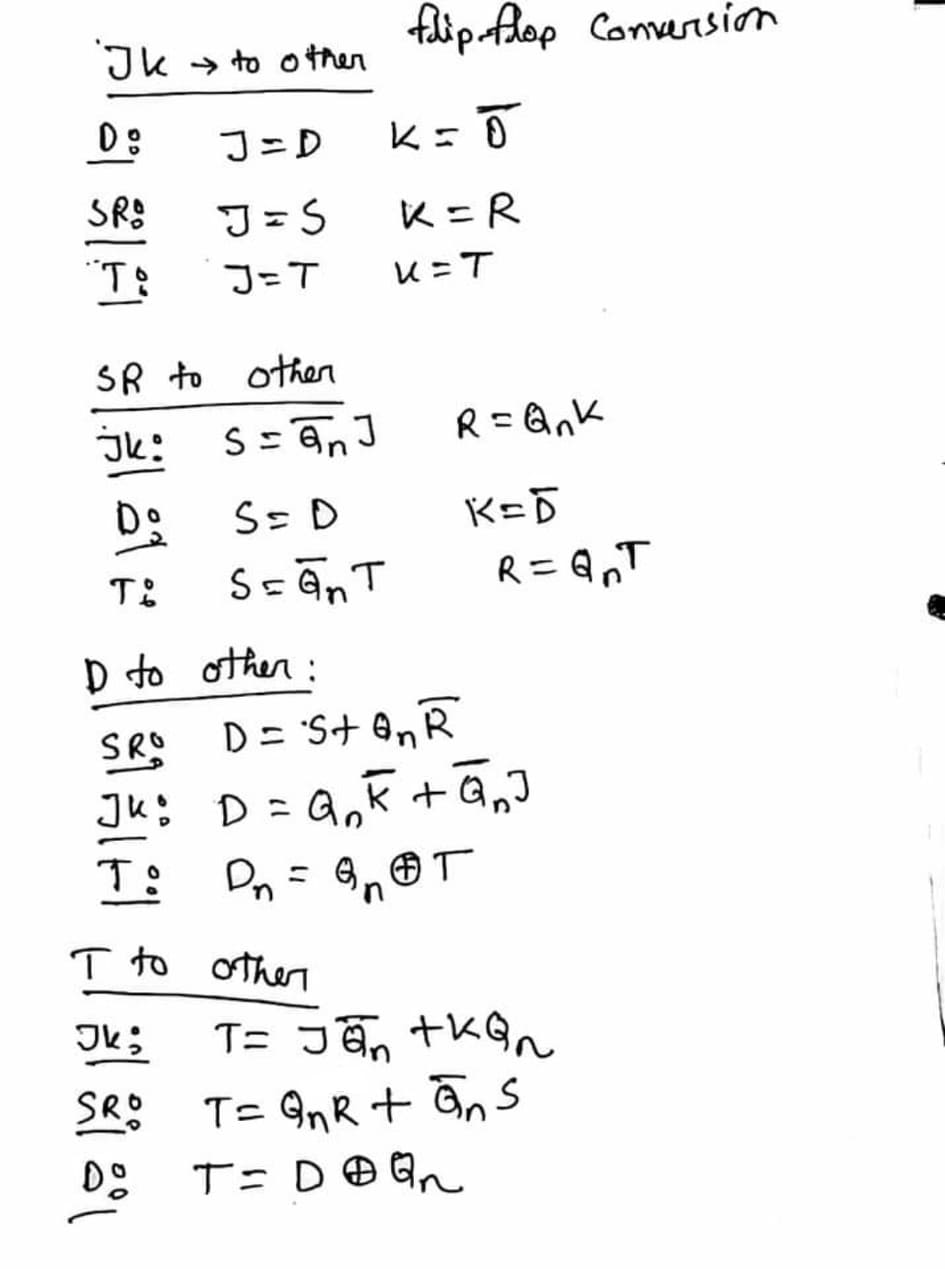 flip-flop Conversion
JK → to other
D: J = D K = D̅
SR: J = S K = R
T: J = T K = T
SR to other
JK: S = Q̅n J R = QnK
D: S = D K = D̅
T: S = Q̅n T R = QnT
D to other:
SR: D = S + Qn R̅
JK: D = Qn K̅ + Q̅n J
T: Dn = Qn ⊕ T
T to other
JK: T = J Q̅n + KQn
SR: T = QnR + Q̅n S
D: T = D ⊕ Qn